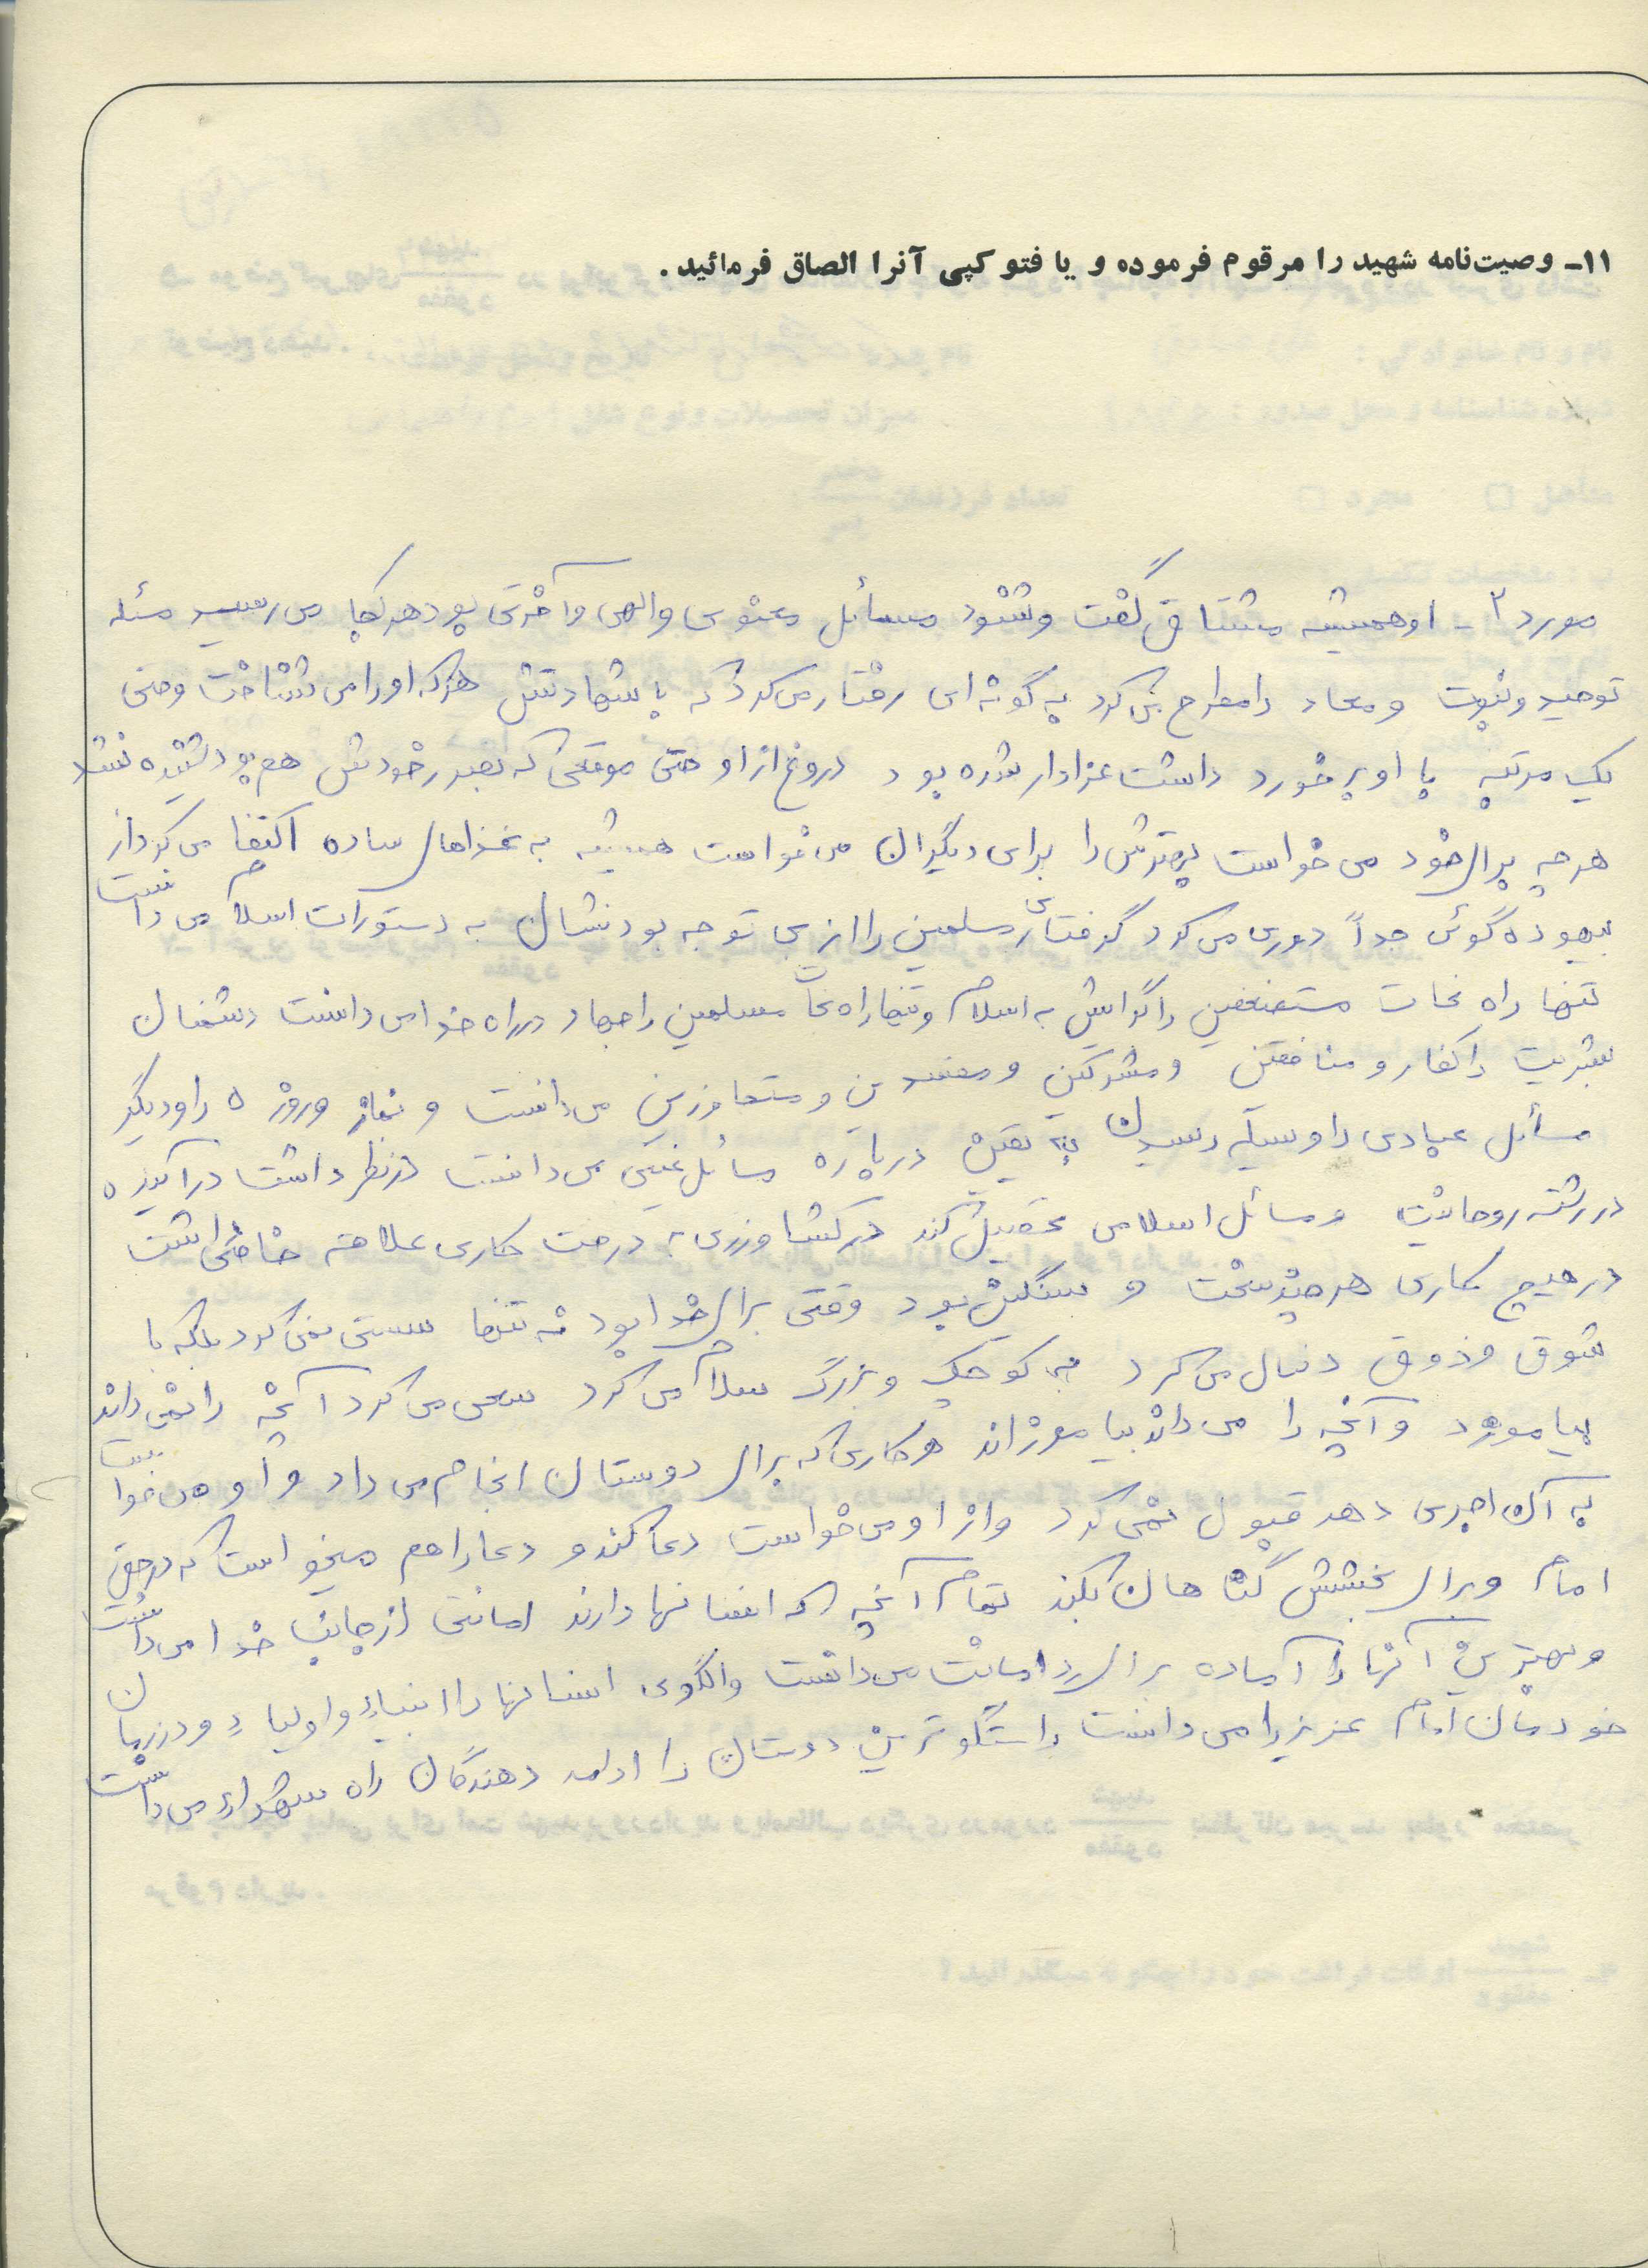 ۱۱ـ وصیت‌نامه شهید را مرقوم فرموده و یا فتوکپی آنرا الصاق فرمائید.
مورد ۲ـ او همیشه مشتاق گفت و شنود مسائل معنوی و الهی و آخرتی بود هر کجا می رسید مسئله
توحید و نبوت و معاد را مطرح می کرد به گونه ای رفتار می کرد که با شهادتش هر که او را می شناخت و حتی
یک مرتبه با او برخورد داشت عزادار شده بود دروغ از او حتی موقعی که بضرر خودش هم بود شنیده نشد
هر چه برای خود می خواست بهترش را برای دیگران می خواست همیشه به غذاهای ساده اکتفا می کرد از
بیهوده گوئی جداً دوری می کرد گرفتاری مسلمین را از بی توجه بودنشان به دستورات اسلام می دانست
تنها راه نجات مستضعفین را گرایش به اسلام و تنها راه نجات مسلمین را جهاد در راه خدا می دانست دشمنان
بشریت را کفار و منافقین و مشرکین و مفسدین و متجاوزین می دانست و نماز و روزه را و دیگر
مسائل عبادی را وسیله رسیدن به یقین درباره مسائل غیبی می دانست در نظر داشت در آینده
در رشته روحانیت و مسائل اسلامی تحصیل کند در کشاورزی به درخت کاری علاقه خاصی داشت
در هیچ کاری هر چند سخت و سنگین بود وقتی برای خدا بود نه تنها سستی نمی کرد بلکه با
شوق و ذوق دنبال می کرد به کوچک و بزرگ سلام می کرد سعی می کرد آنچه را نمی داند
بیاموزد و آنچه را می داند بیاموزاند هر کاری که برای دوستان انجام می داد و او می خواست
به آن اجری دهد قبول نمی کرد و از او می خواست دعا کند و دعا را هم میخواست که در حق
امام و برای بخشش گناهان بکند تمام آنچه که انسانها دارند امانتی از جانب خدا می دانست
و بهترین آنها را آماده برای رد امانت می دانست و الگوی انسانها را انبیاء و اولیاء و در زمان
خودمان امام عزیز را می دانست راستگوترین دوستان را ادامه دهندگان راه شهداء می دانست